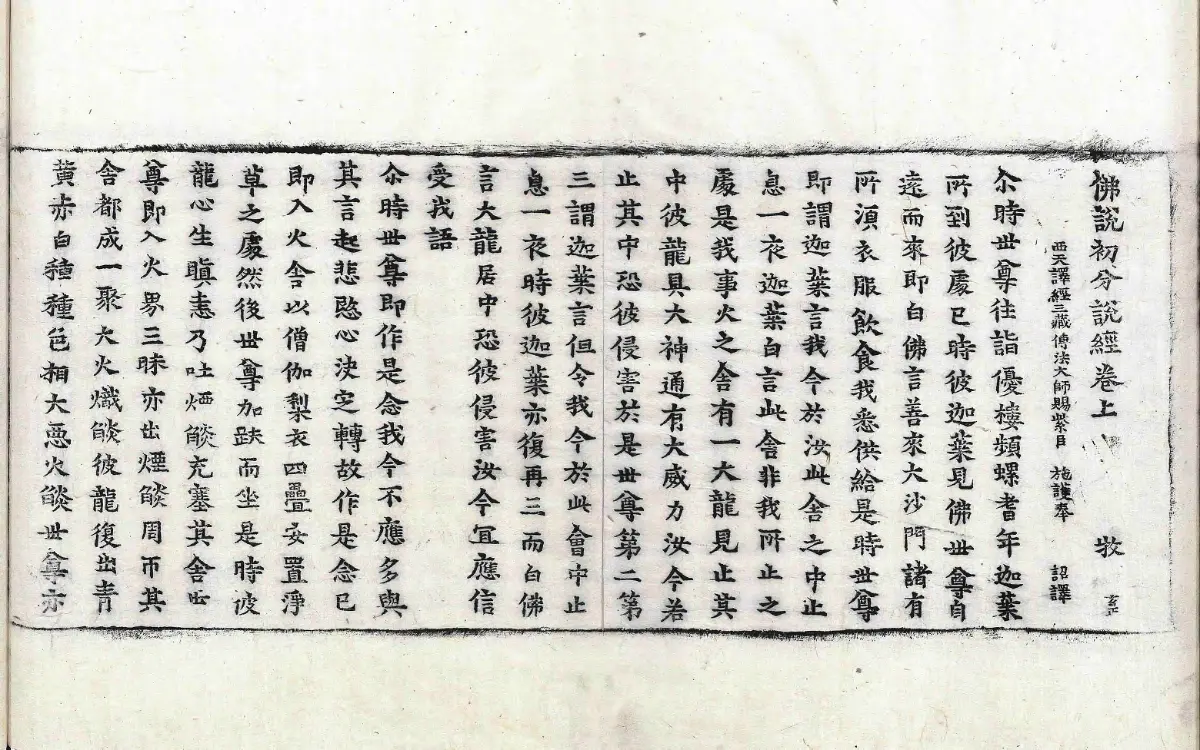 佛說初分說經卷上 牧
西天譯經三藏傳法大師賜紫臣 施護奉 詔譯
尒時世尊往詣優樓頻螺耆年迦葉
所到彼處已時彼迦葉見佛世尊自
遠而來即白佛言善來大沙門諸有
所湏衣服飲食我悉供給是時世尊
即謂迦葉言我今於汝此舍之中止
息一夜迦葉白言此舍非我所止之
處是我事火之舍有一大龍見止其
中彼龍具大神通有大威力汝今若
止其中恐彼侵害於是世尊第二第
三謂迦葉言但令我今於此會中止
息一夜時彼迦葉亦復再三而白佛
言大龍居中恐彼侵害汝今冝應信
受我語
尒時世尊即作是念我今不應多與
其言起悲愍心決定轉故作是念已
即入火舍以僧伽梨衣四疊安置淨
草之處然後世尊加趺而坐是時彼
龍心生瞋恚乃吐煙𦦨充塞其舍世
尊即入火界三昧亦出煙𦦨周帀其
舍都成一聚大火熾𦦨彼龍復出青
黃赤白種種色相大惡火𦦨世尊亦